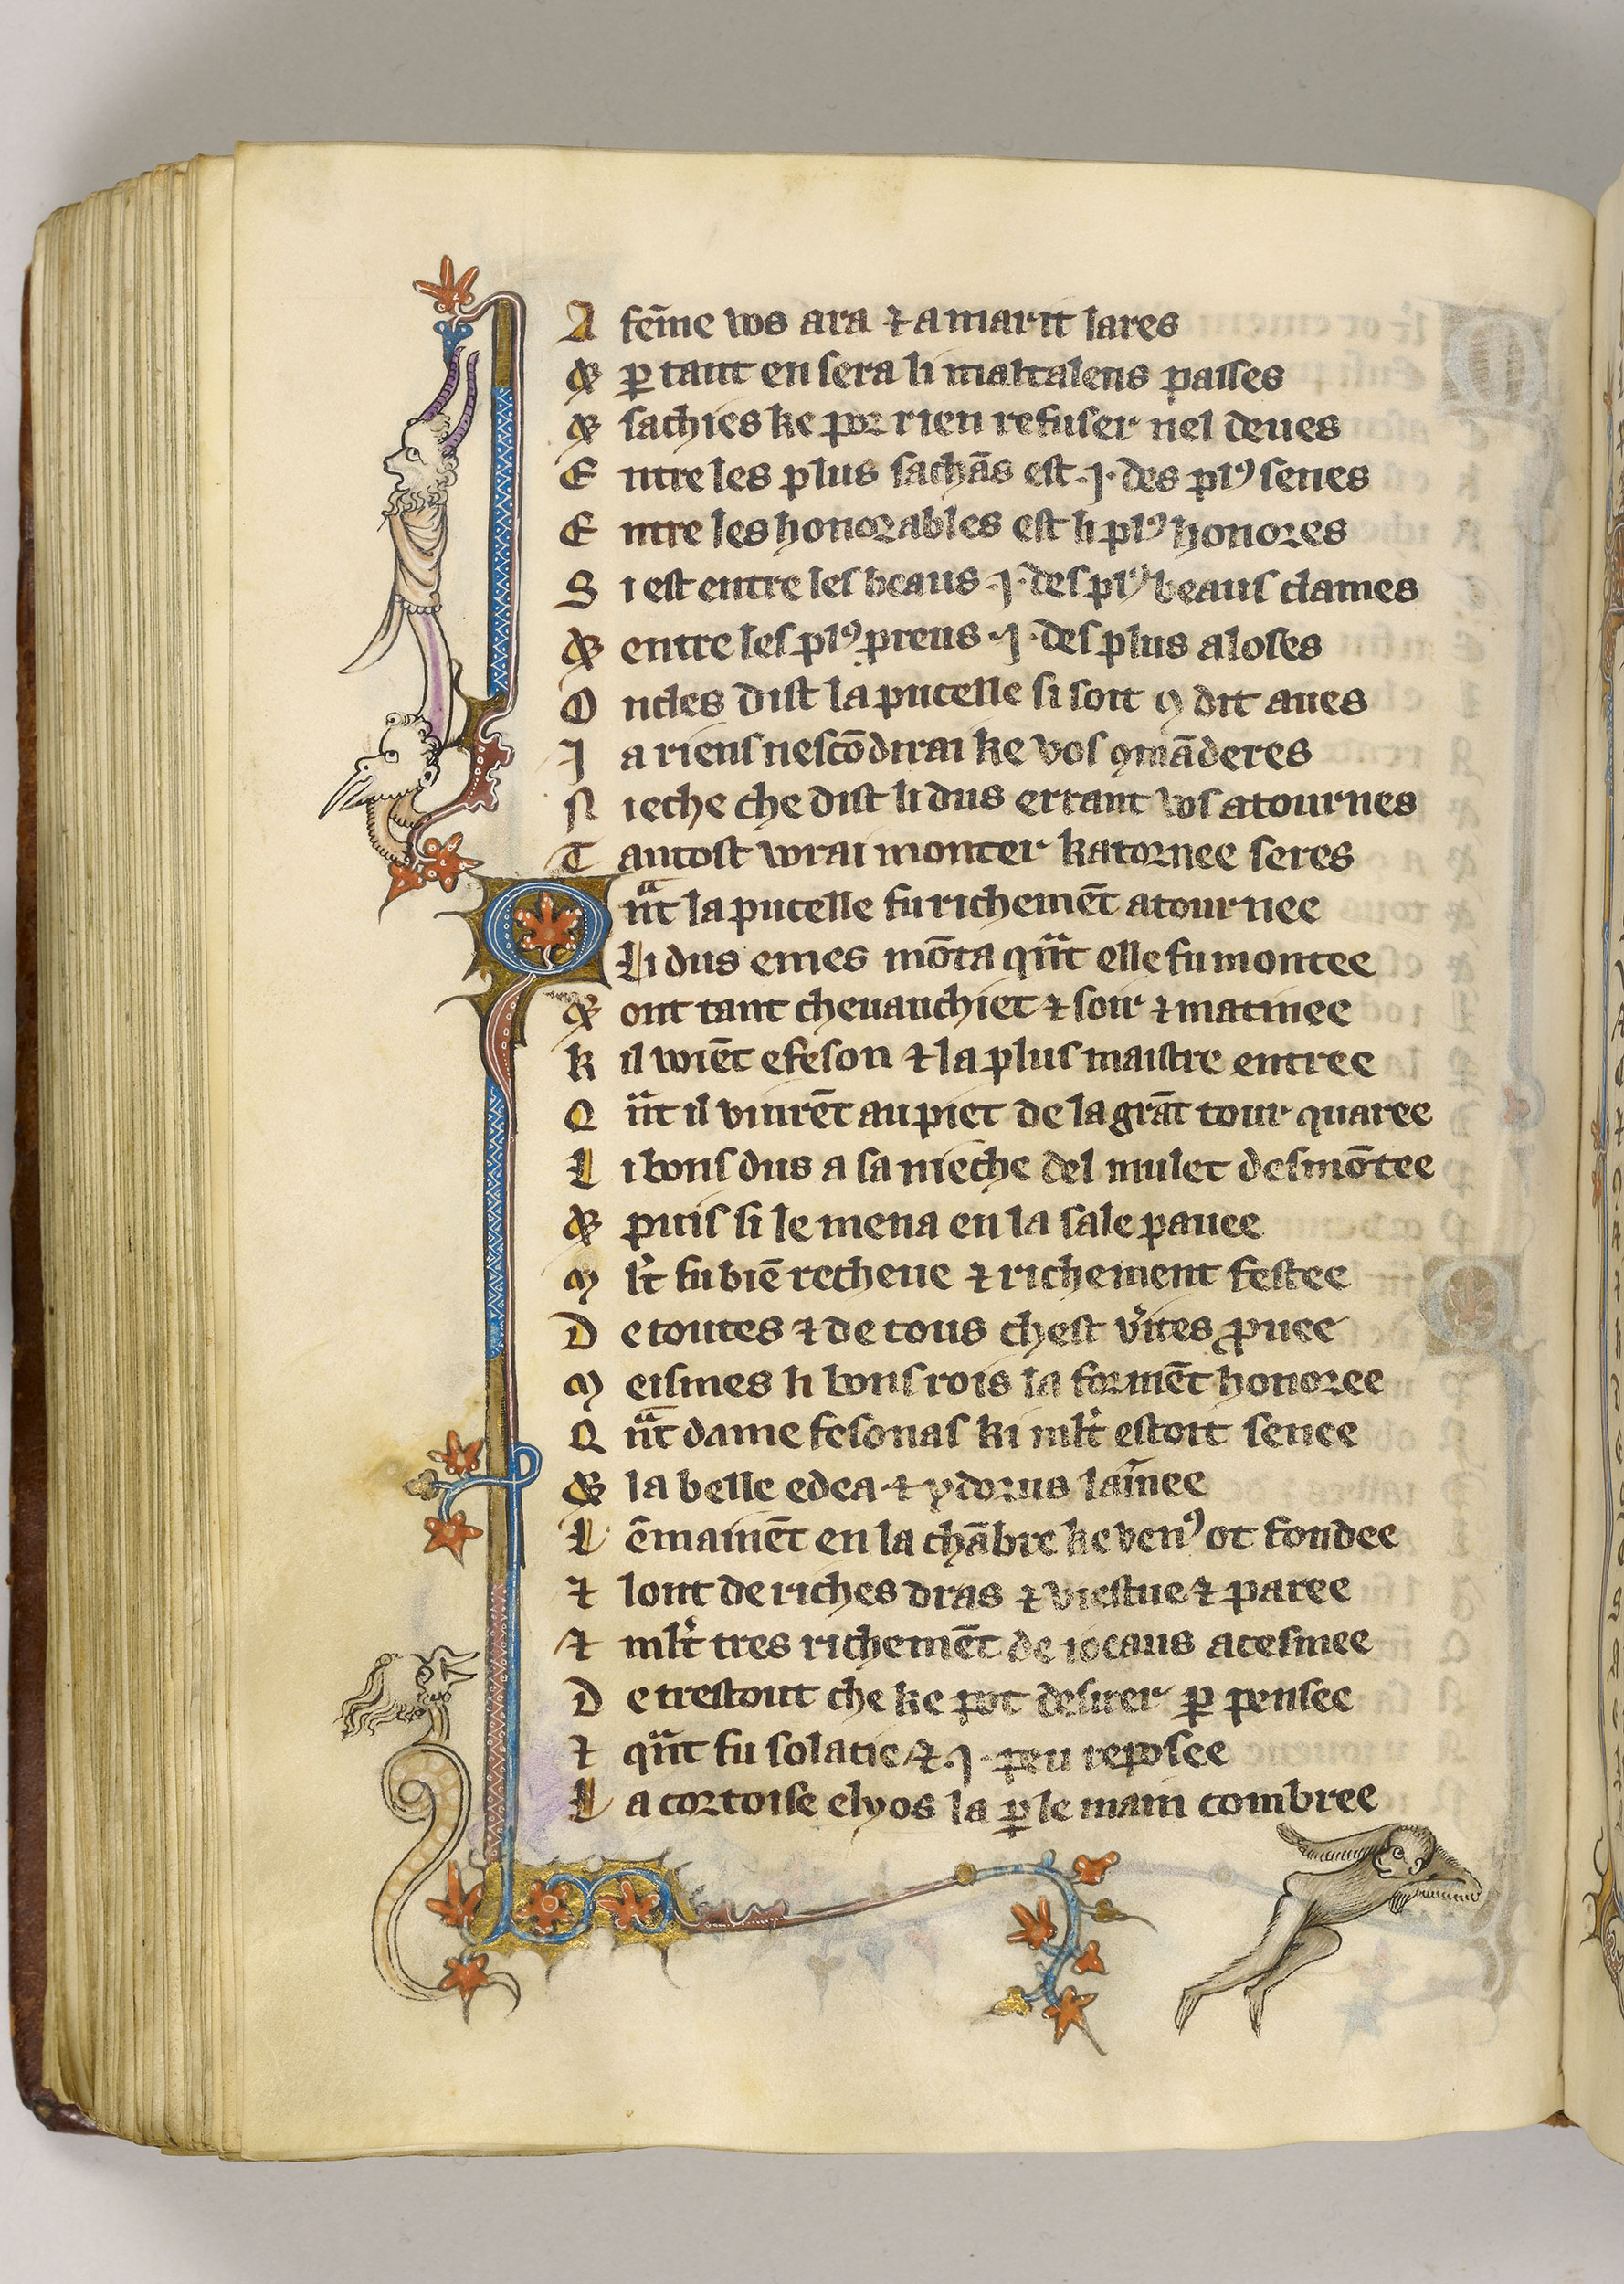 A fem̄e vos ara ⁊ a marit lares
& ꝑ tant en sera li maltalens passes
& sachies ke por rien refuser nel deues
E ntre les plus sachās est .j. des plꝰ senes
E ntre les honorables est li plꝰ honores
S i est entre les beaus .j. des plꝰ beaus clames
& entre les plꝰ preus .j. des plus aloses
O ncles dist la pucelle si soit ꝯ dit aues
J a riens nescōdirai ke vos ꝯmāderes
N ieche che dist li dus errant vos atournes
T antost vorai monter katornee seres
Qn̄t la pucelle fu richemēt atournee
Li dus emes mōta qn̄t elle fu montee
& ont tant cheuauchiet ⁊ soir ⁊ matinee
K il vviēt efeson ⁊ la plus maistre entree
Q n̄t il vinrēt au piet de la grāt tour quaree
L i bons dus a sa nieche del mulet desmōtee
& puis si le mena en la sale pauee
M l̄t fu biē recheue ⁊ richement festee
D e toutes ⁊ de tous chest v̄ites ꝓuee
M eismes li bons rois la formēt honoree
Q n̄t dame fesonas ki ml̄t estoit senee
& la belle edea ⁊ ydorus lam̄ee
L ēmainēt en la chābre ke venꝰ ot fondee
⁊ lont de riches dras ⁊ viestue ⁊ paree
⁊ ml̄t tres richemēt de ioeaus acesmee
D e trestout che ke pot desirer ꝑ pensee
⁊ qn̄t fu solatie ⁊ .j. peu reposee
L a cortoise elyos la ꝑ le main combree